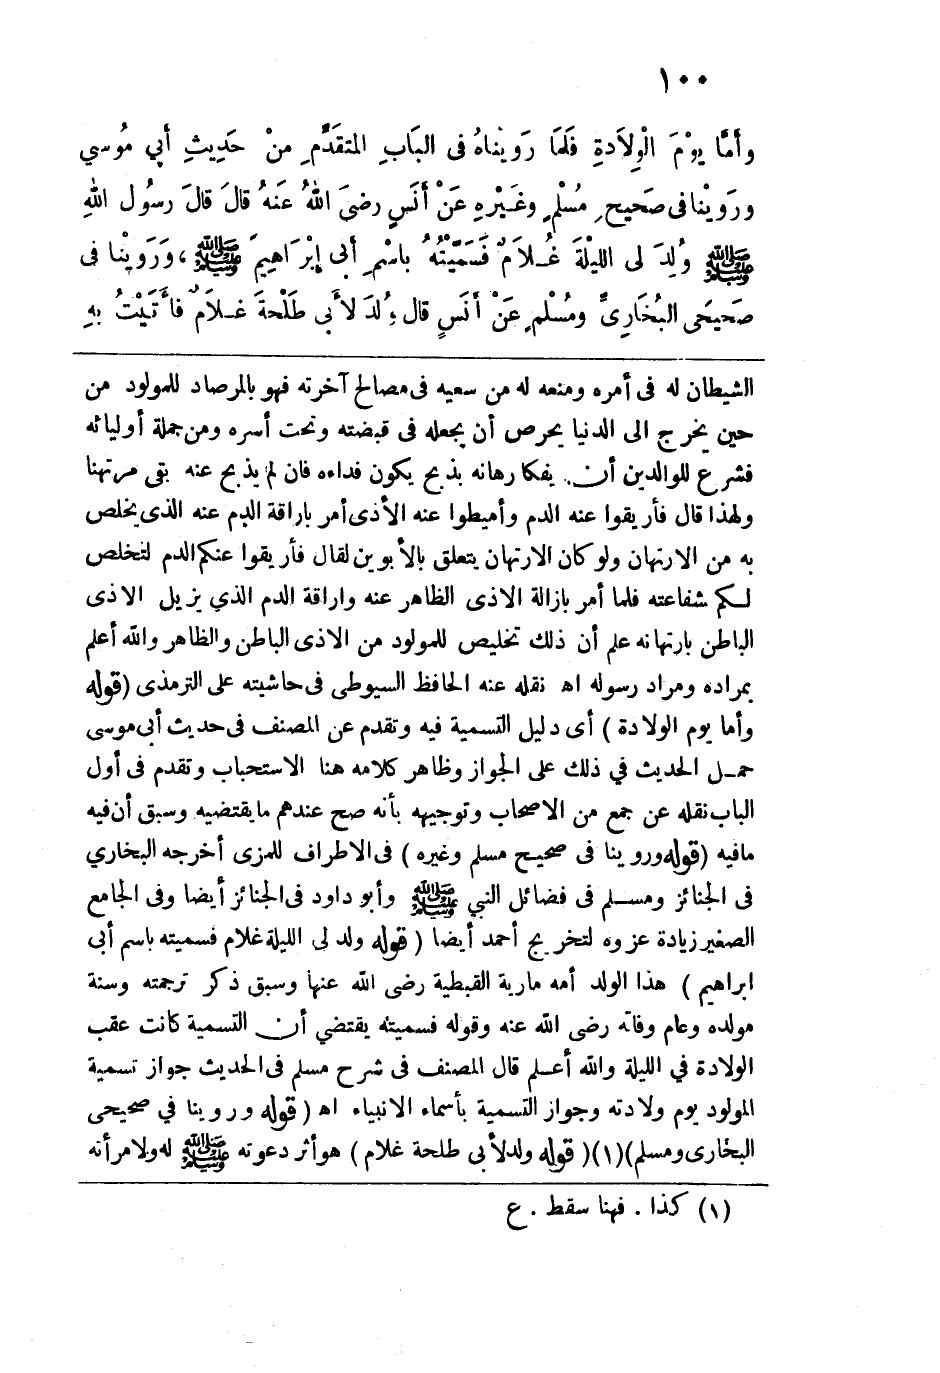 ١٠٠
وأَمَّا يوْمَ الْوِلاَدةِ فَلَمَا رَوَيْناهُ فى البَابِ المتقدَّمِ مِنْ حَدِيثِ أَبي مُوسي
ورَوَيْنا فى صَحيح مُسْلمٍ وغَيْرِهِ عَنْ أَنَسٍ رضىَ اللهُ عنَهُ قالَ قالَ رسُول اللهِ
ﷺ وُلِدَ لى الليْلةَ غُـلاَمٌ فَسَمَّيْتُهُ باسْمِ أبى إبْرَاهِيمَ ﷺ ، وَرَوَيْنا فى
صَحيحَى البُخَارِىِّ ومُسْلمٍ عَنْ أنَسٍ قال وُلدَ لأَبى طَلْحةَ غـلاَمٌ فأَتَيْتُ بهِ
الشيطان له فى أمره ومنعه له من سعيه فى مصالح آخرته فهو بالمرصاد للمولود من
حين يخرج الى الدنيا يحرص أن يجعله فى قبضته وتحت أسره ومن جملة أوليائه
فشرع للوالدين أن يفكا رهانه بذبح يكون فداءه فان لم يذبح عنه بقى مرتهنا
ولهذا قال فأريقوا عنه الدم وأميطوا عنه الأذى أمر باراقة الدم عنه الذى يخلص
به من الارتهان ولو كان الارتهان يتعلق بالأبوين لقال فأريقوا عنكم الدم لتخلص
لـكم شفاعته فلما أمر بازالة الاذى الظاهر عنه واراقة الدم الذي يزيل الاذى
الباطن بارتهانه علم أن ذلك تخليص للمولود من الاذى الباطن والظاهر والله أعلم
بمراده ومراد رسوله اه نقله عنه الحافظ السيوطى فى حاشيته على الترمذى (قوله
وأما يوم الولادة ) أى دليل التسمية فيه وتقدم عن المصنف فى حديث أبى موسى
حمـل الحديث في ذلك على الجواز وظاهر كلامه هنا الاستحباب وتقدم فى أول
الباب نقله عن جمع من الاصحاب وتوجيهه بأنه صح عندهم ما يقتضيه وسبق أن فيه
مافيه (قوله وروينا فى صحيح مسلم وغيره ) فى الاطراف للمزى أخرجه البخاري
فى الجنائز ومسـلم فى فضائل النبي ﷺ وأبو داود فى الجنائز أيضا وفى الجامع
الصغير زيادة عزوه لتخريج أحمد أيضا ( قوله ولد لى الليلة غلام فسميته باسم أبى
ابراهيم ) هذا الولد أمه مارية القبطية رضى الله عنها وسبق ذكر ترجمته وسنة
مولده وعام وفاته رضى الله عنه وقوله فسميته يقتضي أن التسمية كانت عقب
الولادة في الليلة والله أعـلم قال المصنف فى شرح مسلم فى الحديث جواز تسمية
المولود يوم ولادته وجواز التسمية بأسماء الانبياء اه ( قوله وروينا في صحيحى
البخارى ومسلم)(١)( قوله ولد لأبى طلحة غلام ) هو أثر دعوته ﷺ له ولامرأته
(١) كذا . فهنا سقط . ع